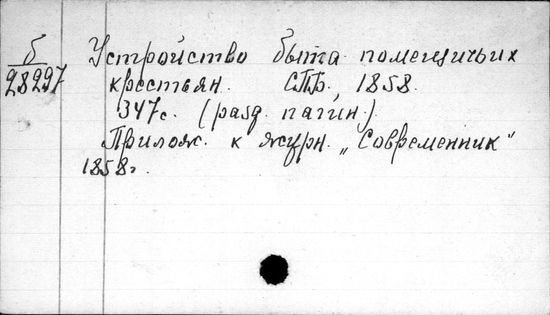 б
28297
Устройство быта помещичьих
крестьян. СПб., 1858.
347с. (разд. пагин.).
Прилож. к журн. „Современник"
1858г.